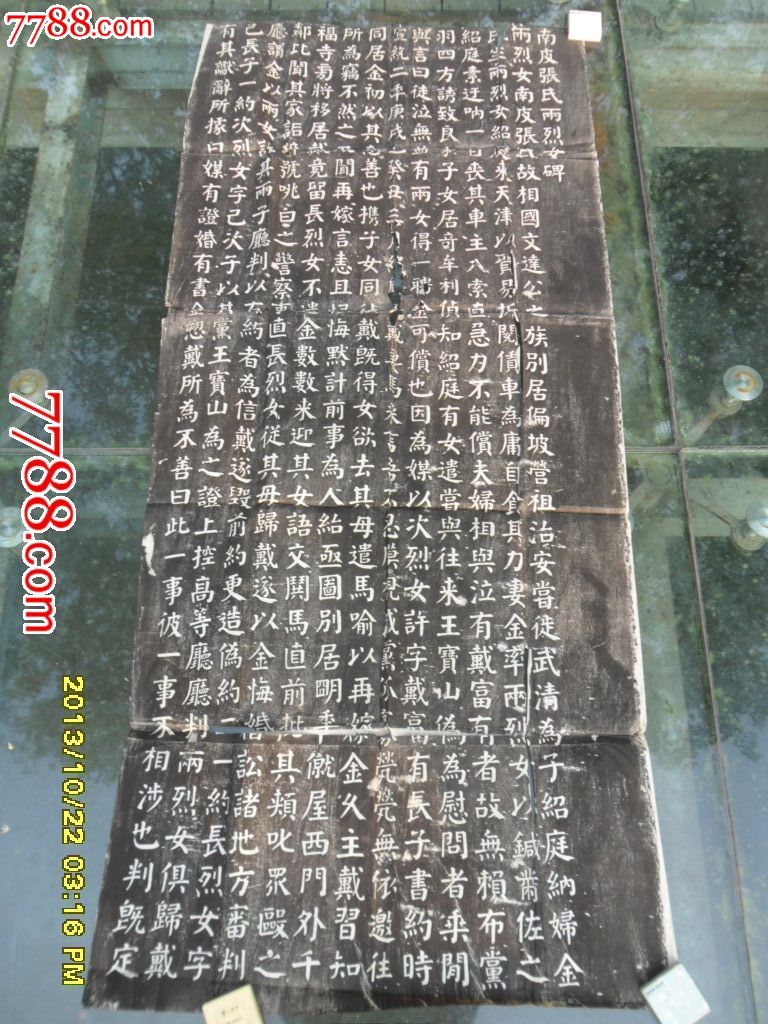 7788.com
南皮張氏兩烈女碑
兩烈女南皮張氏故相國文達公之族別居偏坡營祖治安嘗徙武清為子紹庭納婦金
氏生兩烈女紹庭来天津以貿易折閱債車為庸自食其力妻金率兩烈女以鍼黹佐之
紹庭素迂吶一日喪其車主人索直急力不能償夫婦相與泣有戴富有者故無賴布黨
羽四方誘致良子女居奇牟利偵知紹庭有女遣嘗與往来王寶山偽為慰問者乘閒
與言曰徒泣無益有兩女得一聘金可償也因為媒以次烈女許字戴富有長子書約時
宣統二年庚戌癸丑三月戴妻馬来言吾不忍漠視戚黨孤嫠煢煢無依邀往
同居金初以其意善也攜子女同往戴既得女欲去其母遣馬喻以再嫁金久主戴習知
所為竊不然之又聞再嫁言恚且悔默計前事為人紿亟圖別居朙年僦屋西門外千
福寺旁將移居戴竟留長烈女不遣金數數来迎其女語交鬨馬直前批其頰叱眾毆之
鄰比聞其家詬誶號咷白之警察吏直長烈女從其母歸戴遂以金悔婚訟諸地方審判
廳謂金以兩女許其兩子廳判以有約者為信戴遂毀前約更造偽約二一約長烈女字
己長子一約次烈女字己次子以其黨王寶山為之證上控高等廳廳判兩烈女俱歸戴
有其讞辭所據曰媒有證婚有書金愬戴所為不善曰此一事彼一事不相涉也判既定
7788.com
2013/10/22 03:16 PM